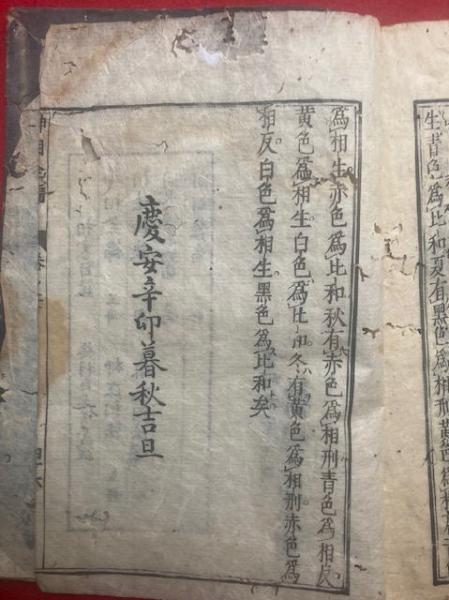 生青色爲比和夏有黑色爲相刑
爲相生赤色爲比和秋有赤色爲相刑青色爲相反
黄色爲相生白色爲比和冬有黄色爲相刑赤色爲
相反白色爲相生黑色爲比和矣
慶安辛卯暮秋吉旦